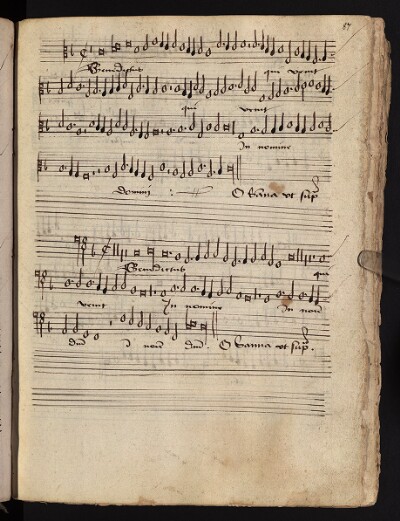 87
Benedictus qui venit
qui venit
In nomine
domini : O sanna ut sup
Benedictus qui
venit In nomine In nomi
dni i nomi dni . O sanna ut sup .